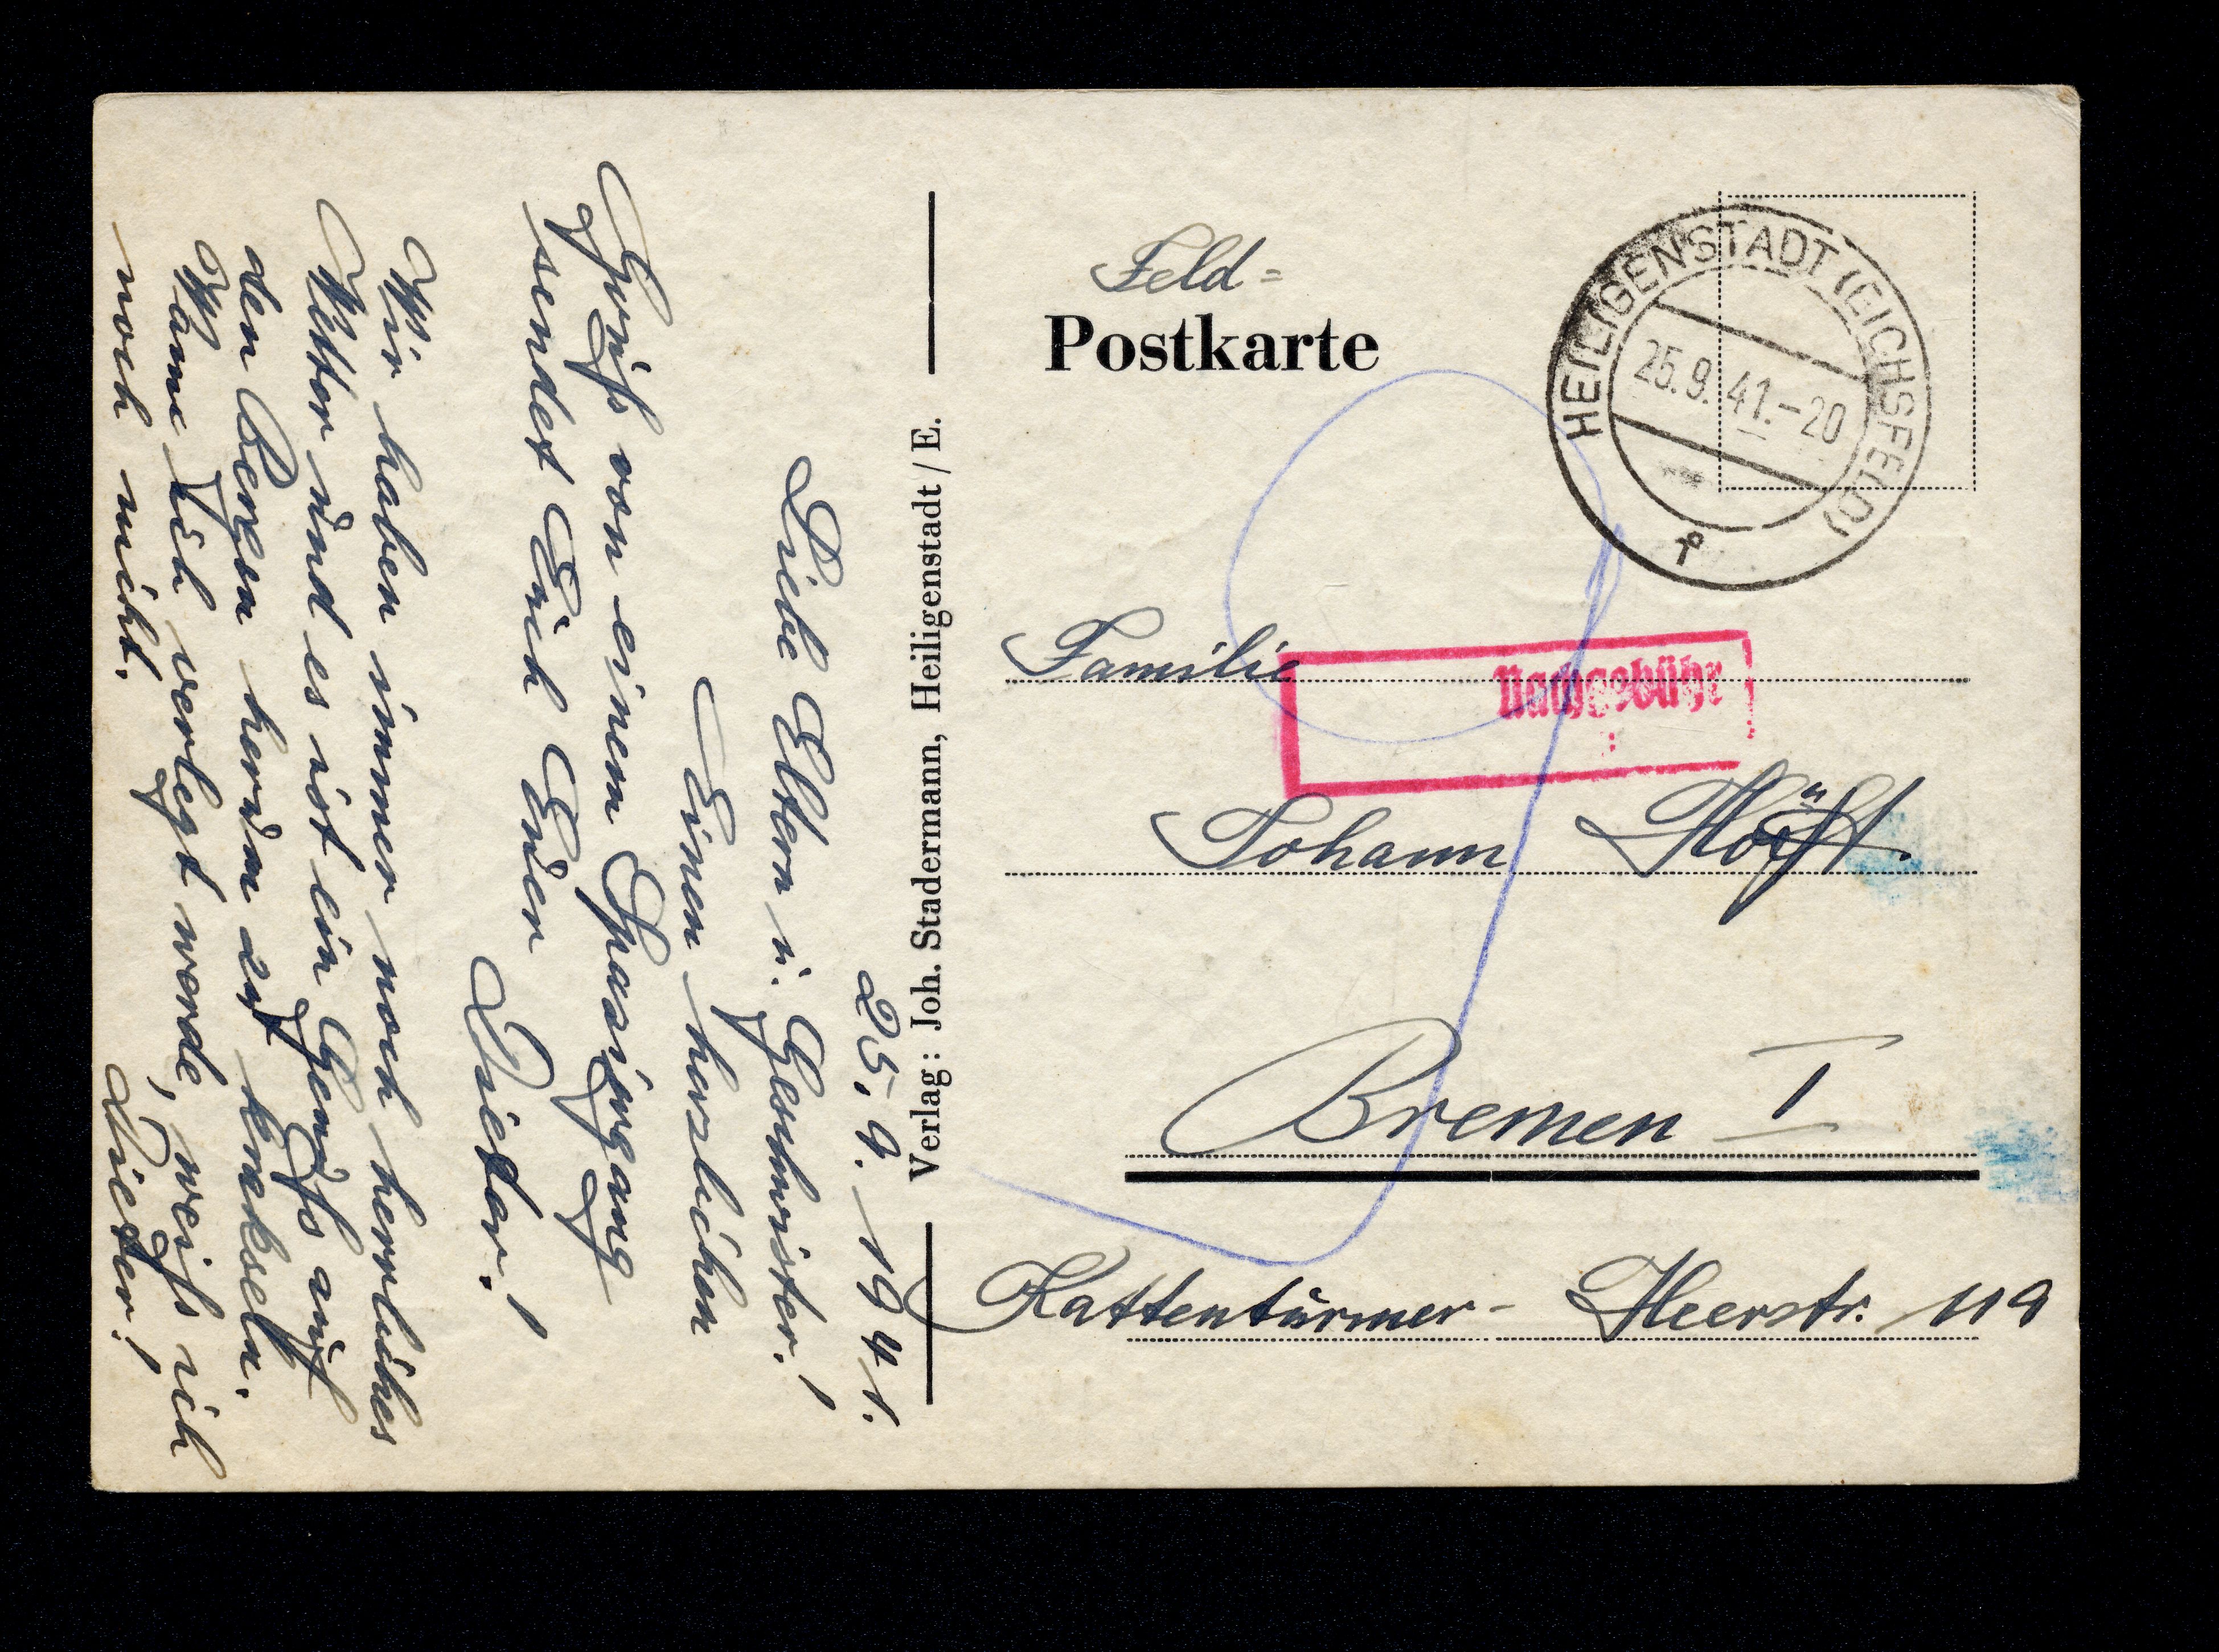 25. 9. 1941.
Liebe Eltern u. Geschwister!
Einen herzlichen
Gruß von einem Spaziergang
sendet Euch Euer
Dieter!
Wir haben immer noch herrliches
Wetter und es ist ein Genuß auf
den Bergen herum zu krakseln.
Wann ich verlegt werde, weiß ich
noch nicht.
Dieter!
Verlag: Joh. Stadermann, Heiligenstadt / E.
Feld=
Postkarte
HEILIGENSTADT (EICHSFELD)
25.9.41.-20
Familie
Nachgebühr
Johann Höft.
Bremen I
Kattentürmer- Heerstr. 119